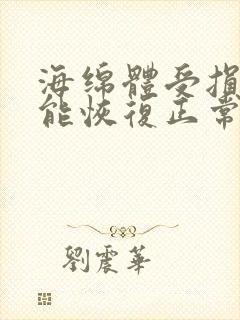 海绵體受損
能恢復正常
劉震華